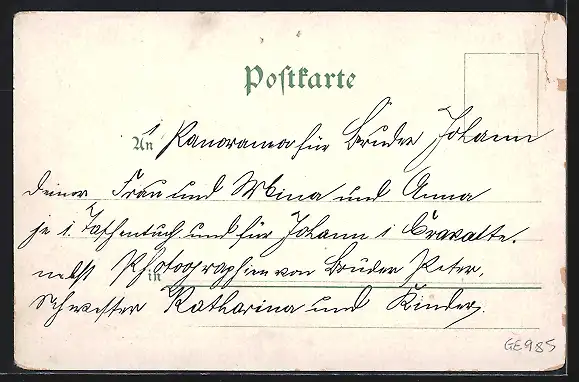 Postkarte
An
1 Panorama für Bruder Johann
deiner Frau und Mina und Anna
je 1. Taschentuch und für Johann 1 Cravatte.
nebst Photographien von Bruder Peter,
in
Schwester Katharina und Kinder.
GE985